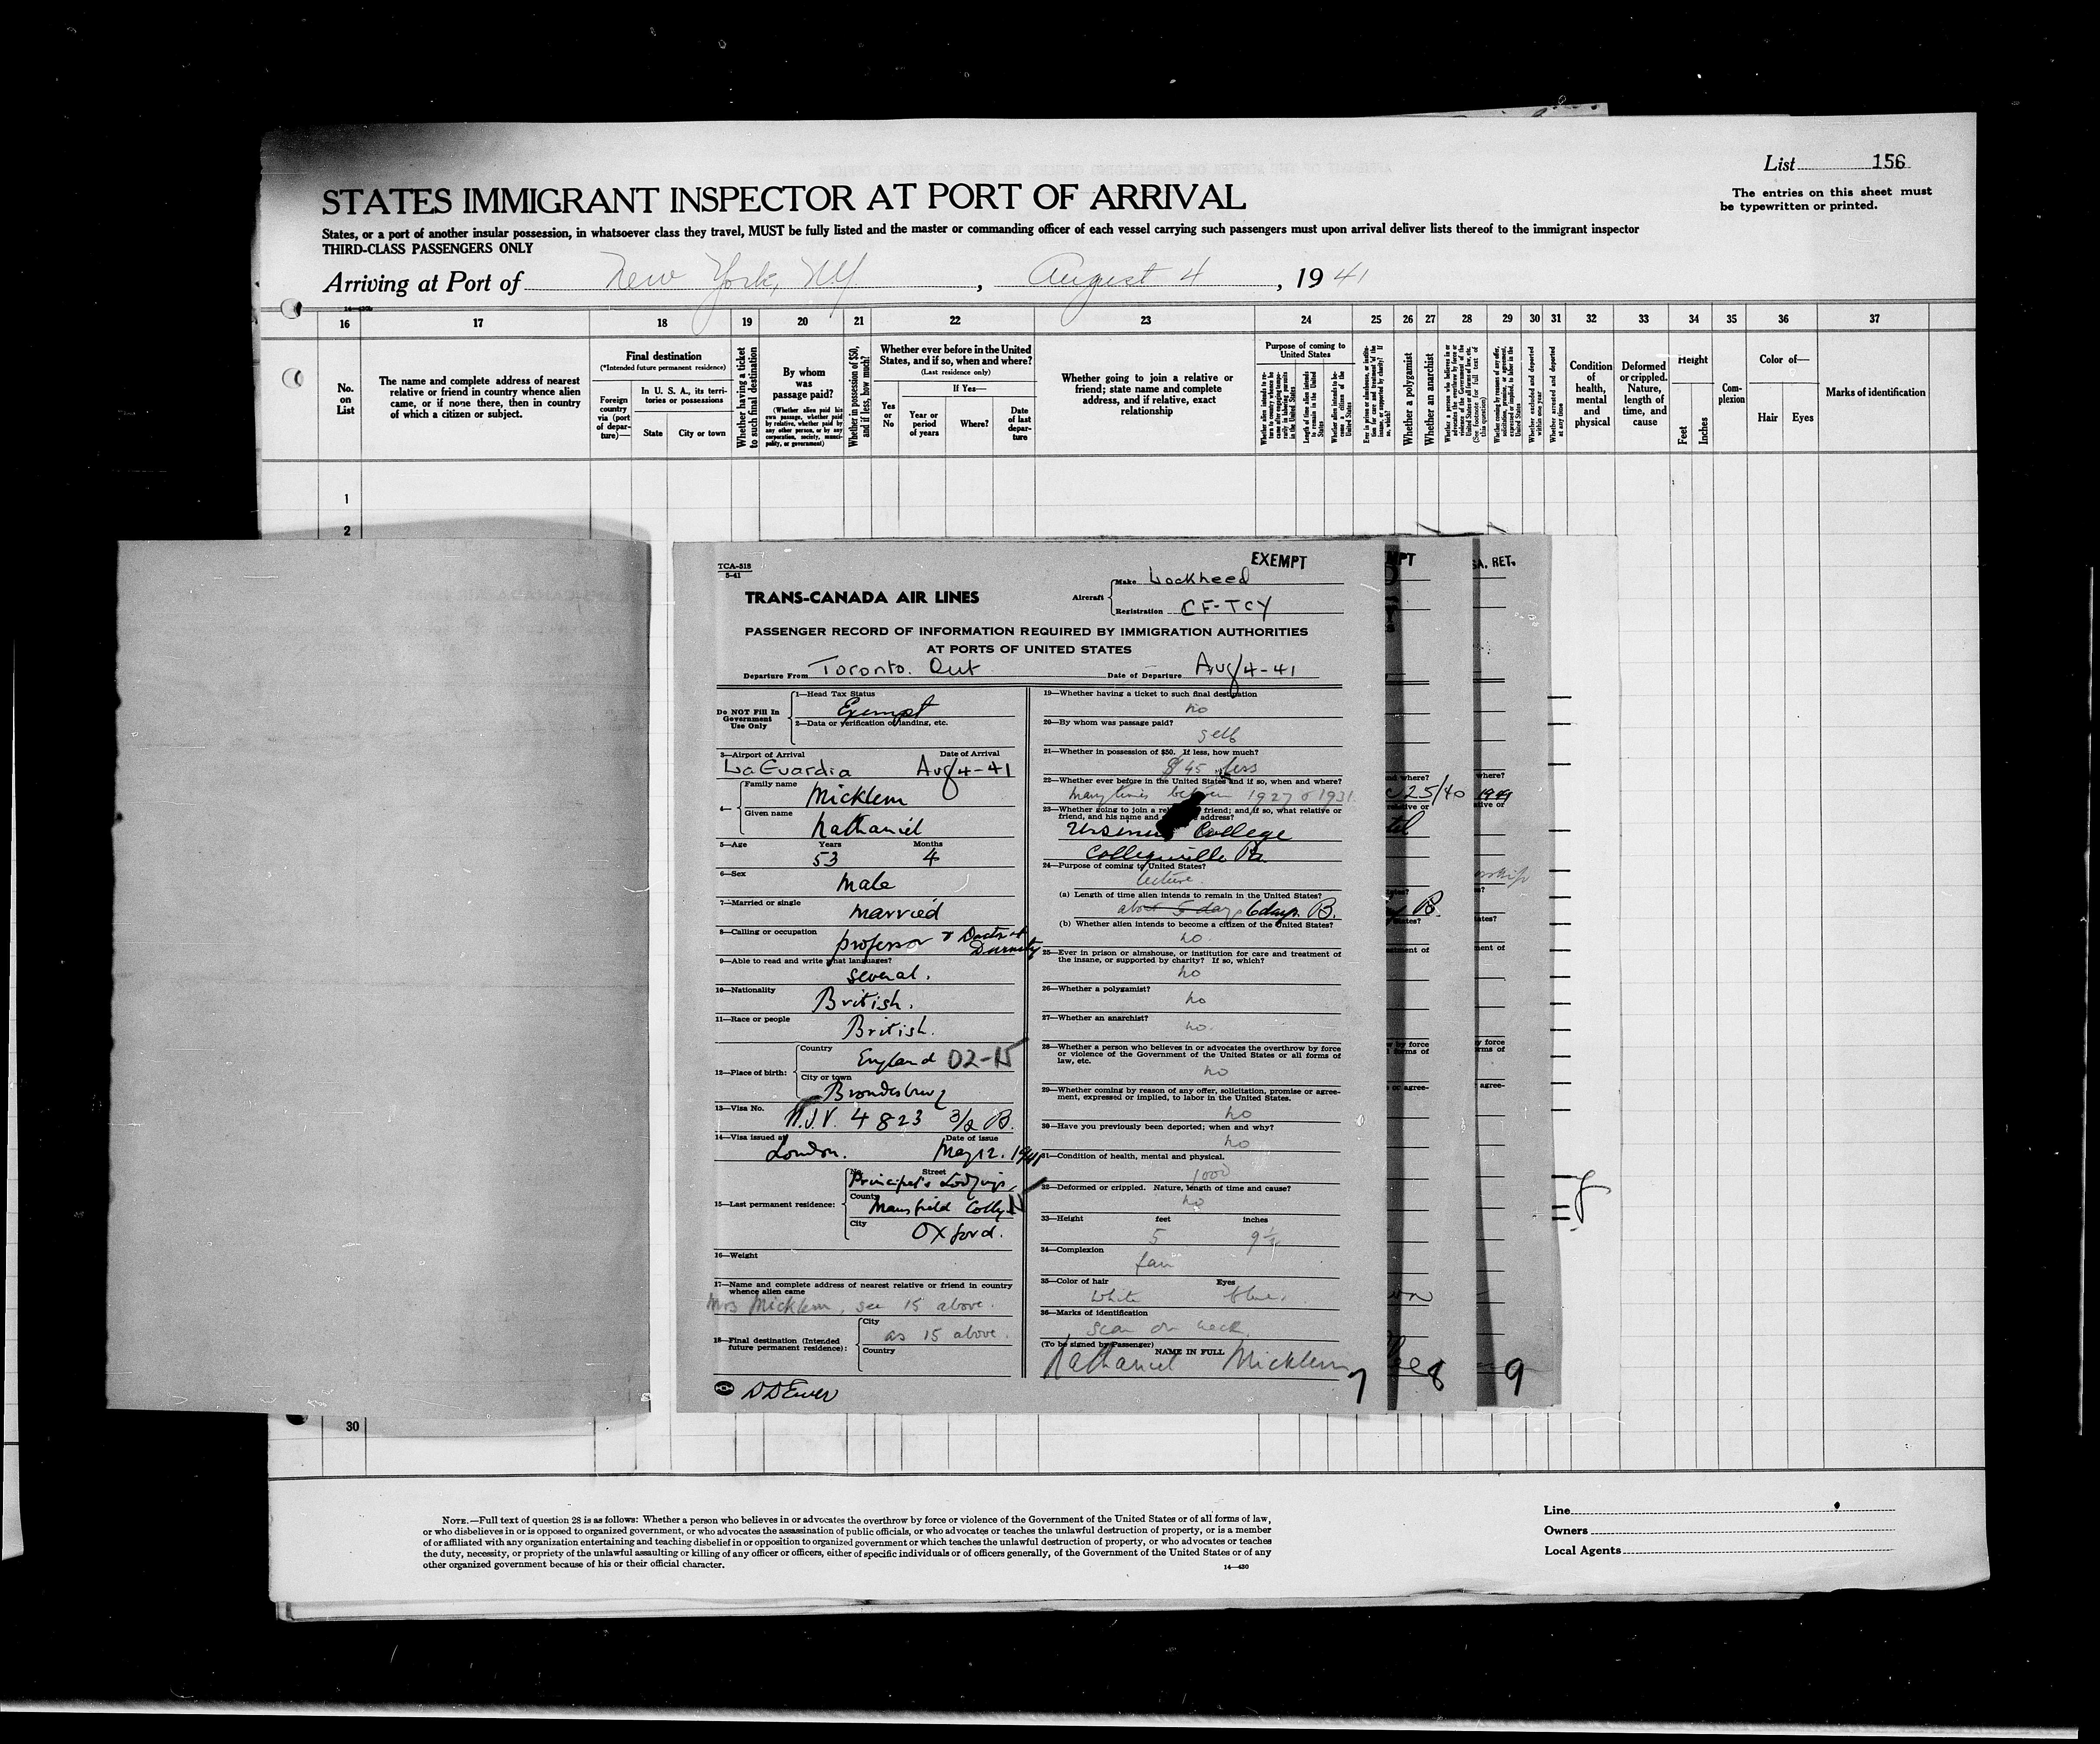 List 156
The entries on this sheet must
be typewritten or printed.
STATES IMMIGRANT INSPECTOR AT PORT OF ARRIVAL
States, or a port of another insular possession, in whatsoever class they travel, MUST be fully listed and the master or commanding officer of each vessel carrying such passengers must upon arrival deliver lists thereof to the immigrant inspector
THIRD-CLASS PASSENGERS ONLY
Arriving at Port of New York, NY, August 4, 1941
16 17 18 19 20 21 22 23 24 25 26 27 28 29 30 31 32 33 34 35 36 37
No. on List
The name and complete address of nearest
relative or friend in country whence alien
came, or if none there, then in country
of which a citizen or subject.
Final destination
(*Intended future permanent residence)
Foreign country via (port of departure)—
In U. S. A., its territories or possessions
State City or town
Whether having a ticket to such final destination
By whom was passage paid?
(Whether alien paid his own passage, whether paid by relative, whether paid by any other person, or by any corporation, society, municipality, or government)
Whether in possession of $50, and if less, how much?
Whether ever before in the United
States, and if so, when and where?
(Last residence only)
If Yes—
Yes or No
Year or period of years
Where?
Date of last departure
Whether going to join a relative or
friend; state name and complete
address, and if relative, exact
relationship
Purpose of coming to United States
Whether a polygamist
Whether an anarchist
Condition of health, mental and physical
Deformed or crippled. Nature, length of time, and cause
Height
Feet Inches
Complexion
Color of—
Hair Eyes
Marks of identification
1
2
30
TCA-518
5-41
EXEMPT
TRANS-CANADA AIR LINES
Aircraft
Make Lockheed
Registration CF-TCY
PASSENGER RECORD OF INFORMATION REQUIRED BY IMMIGRATION AUTHORITIES
AT PORTS OF UNITED STATES
Departure From Toronto. Ont Date of Departure Aug 4-41
Do NOT Fill In
Government
Use Only
1—Head Tax Status
Exempt
2—Data or verification of landing, etc.
3—Airport of Arrival Date of Arrival
LaGuardia Aug 4-41
4— Family name
Micklem
Given name
Nathaniel
5—Age Years Months
53 4
6—Sex
male
7—Married or single
married
8—Calling or occupation
professor
9—Able to read and write what languages?
several.
10—Nationality
British.
11—Race or people
British.
12—Place of birth:
Country
England 02-15
City or town
Brondesbury
13—Visa No.
4823 3/2 B.
14—Visa issued at Date of issue
London. May 12. 1941
15—Last permanent residence:
No. Street
Principal's Lodgings,
County
Mansfield Colly
City
Oxford.
16—Weight
17—Name and complete address of nearest relative or friend in country
whence alien came
Mrs Micklem, see 15 above.
18—Final destination (Intended
future permanent residence):
City
as 15 above.
Country
19—Whether having a ticket to such final destination
no
20—By whom was passage paid?
self
21—Whether in possession of $50. If less, how much?
$45 less
22—Whether ever before in the United States and if so, when and where?
many times between 1927 & 1931.
23—Whether going to join a relative or friend; and if so, what relative or
friend, and his name and address?
Ursinus College
Collegeville Pa.
24—Purpose of coming to United States?
lecture.
(a) Length of time alien intends to remain in the United States?
about 5 days 6 days. B.
(b) Whether alien intends to become a citizen of the United States?
no.
25—Ever in prison or almshouse, or institution for care and treatment of
the insane, or supported by charity? If so, which?
no
26—Whether a polygamist?
no
27—Whether an anarchist?
no.
28—Whether a person who believes in or advocates the overthrow by force
or violence of the Government of the United States or all forms of
law, etc.
no
29—Whether coming by reason of any offer, solicitation, promise or agree-
ment, expressed or implied, to labor in the United States.
no
30—Have you previously been deported; when and why?
no
31—Condition of health, mental and physical.
good
32—Deformed or crippled. Nature, length of time and cause?
no
33—Height feet inches
5 9½
34—Complexion
fair
35—Color of hair Eyes
white blue.
36—Marks of identification
scar on neck.
(To be signed by Passenger) NAME IN FULL
Nathaniel Micklem
7
8
9
NOTE.—Full text of question 28 is as follows: Whether a person who believes in or advocates the overthrow by force or violence of the Government of the United States or of all forms of law,
or who disbelieves in or is opposed to organized government, or who advocates the assassination of public officials, or who advocates or teaches the unlawful destruction of property, or is a member
of or affiliated with any organization entertaining and teaching disbelief in or opposition to organized government or which teaches the unlawful destruction of property, or who advocates or teaches
the duty, necessity, or propriety of the unlawful assaulting or killing of any officer or officers, either of specific individuals or of officers generally, of the Government of the United States or of any
other organized government because of his or their official character.
14—430
Line
Owners
Local Agents